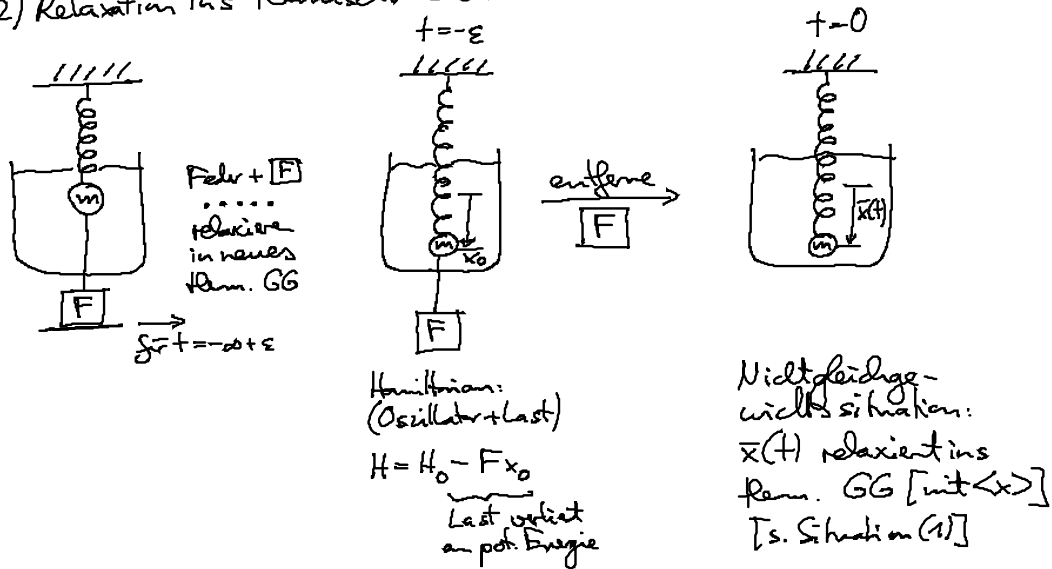 2) Relaxation ins
t=-ε
t=0
m
F
Feder + F
.....
relaxieren
in neues
therm. GG
für t=-∞+ε
m
x₀
F
entferne
F
m
x̄(t)
Hamiltonian:
(Oszillator+Last)
H = H₀ - Fx₀
Last verliert
an pot. Energie
Nichtgleichge-
wichtssituation:
x̄(t) relaxiert ins
therm. GG [mit <x>]
[s. Situation (1)]